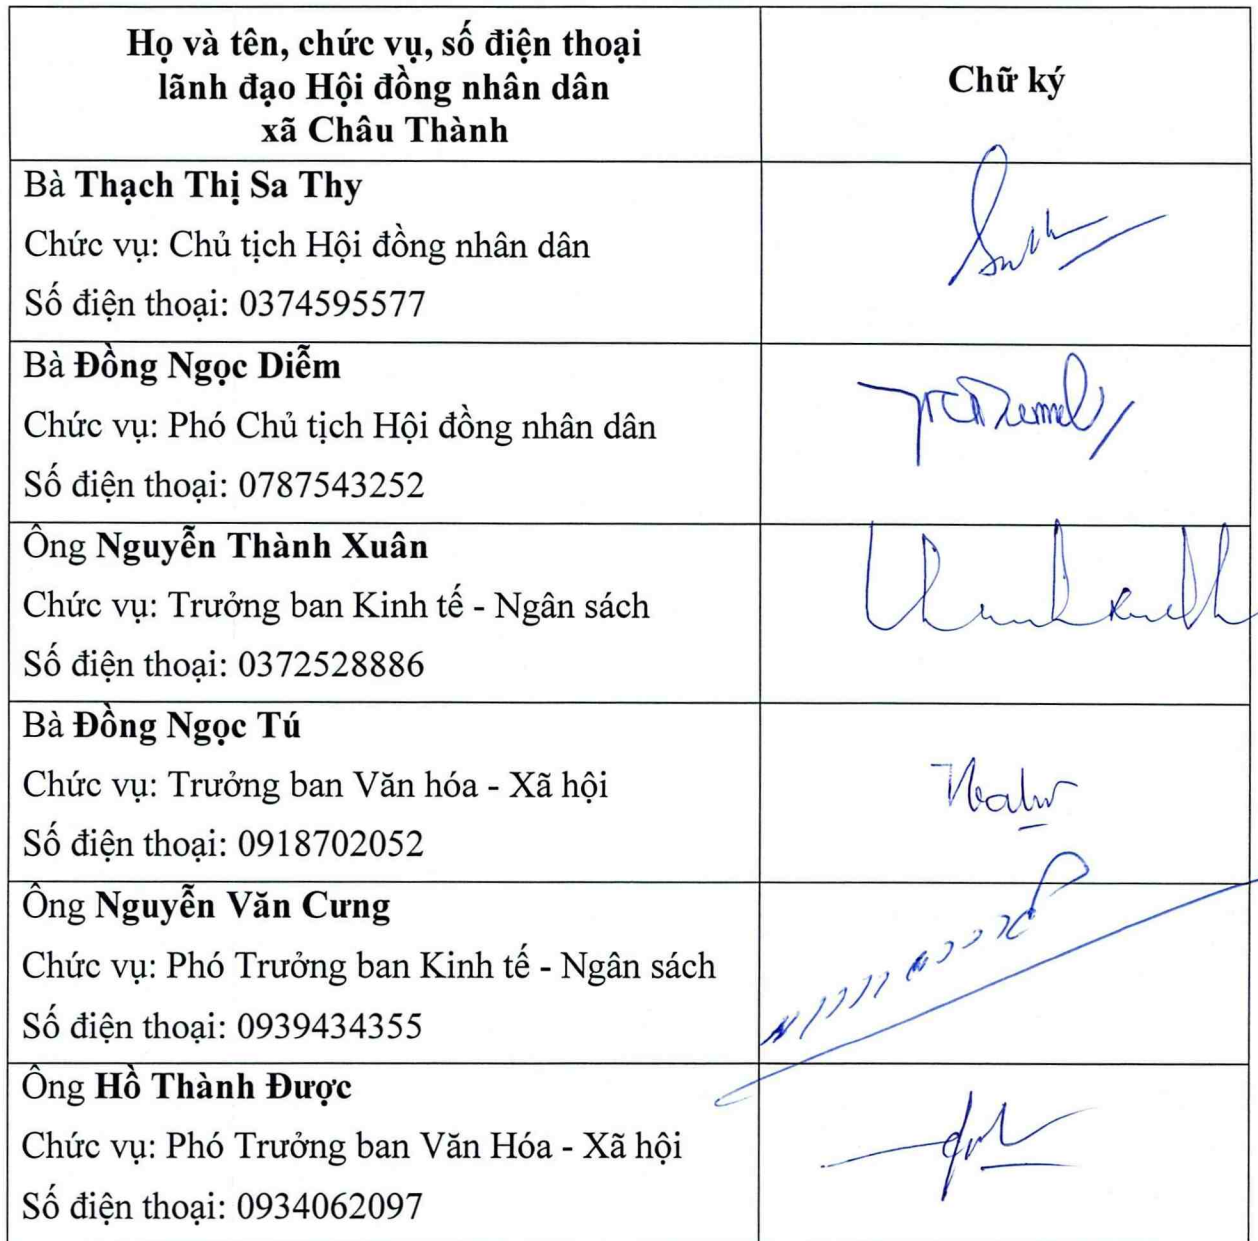 Họ và tên, chức vụ, số điện thoại
lãnh đạo Hội đồng nhân dân
xã Châu Thành
Chữ ký
Bà Thạch Thị Sa Thy
Chức vụ: Chủ tịch Hội đồng nhân dân
Số điện thoại: 0374595577
Bà Đồng Ngọc Diễm
Chức vụ: Phó Chủ tịch Hội đồng nhân dân
Số điện thoại: 0787543252
Ông Nguyễn Thành Xuân
Chức vụ: Trưởng ban Kinh tế - Ngân sách
Số điện thoại: 0372528886
Bà Đồng Ngọc Tú
Chức vụ: Trưởng ban Văn hóa - Xã hội
Số điện thoại: 0918702052
Ông Nguyễn Văn Cưng
Chức vụ: Phó Trưởng ban Kinh tế - Ngân sách
Số điện thoại: 0939434355
Ông Hồ Thành Được
Chức vụ: Phó Trưởng ban Văn Hóa - Xã hội
Số điện thoại: 0934062097